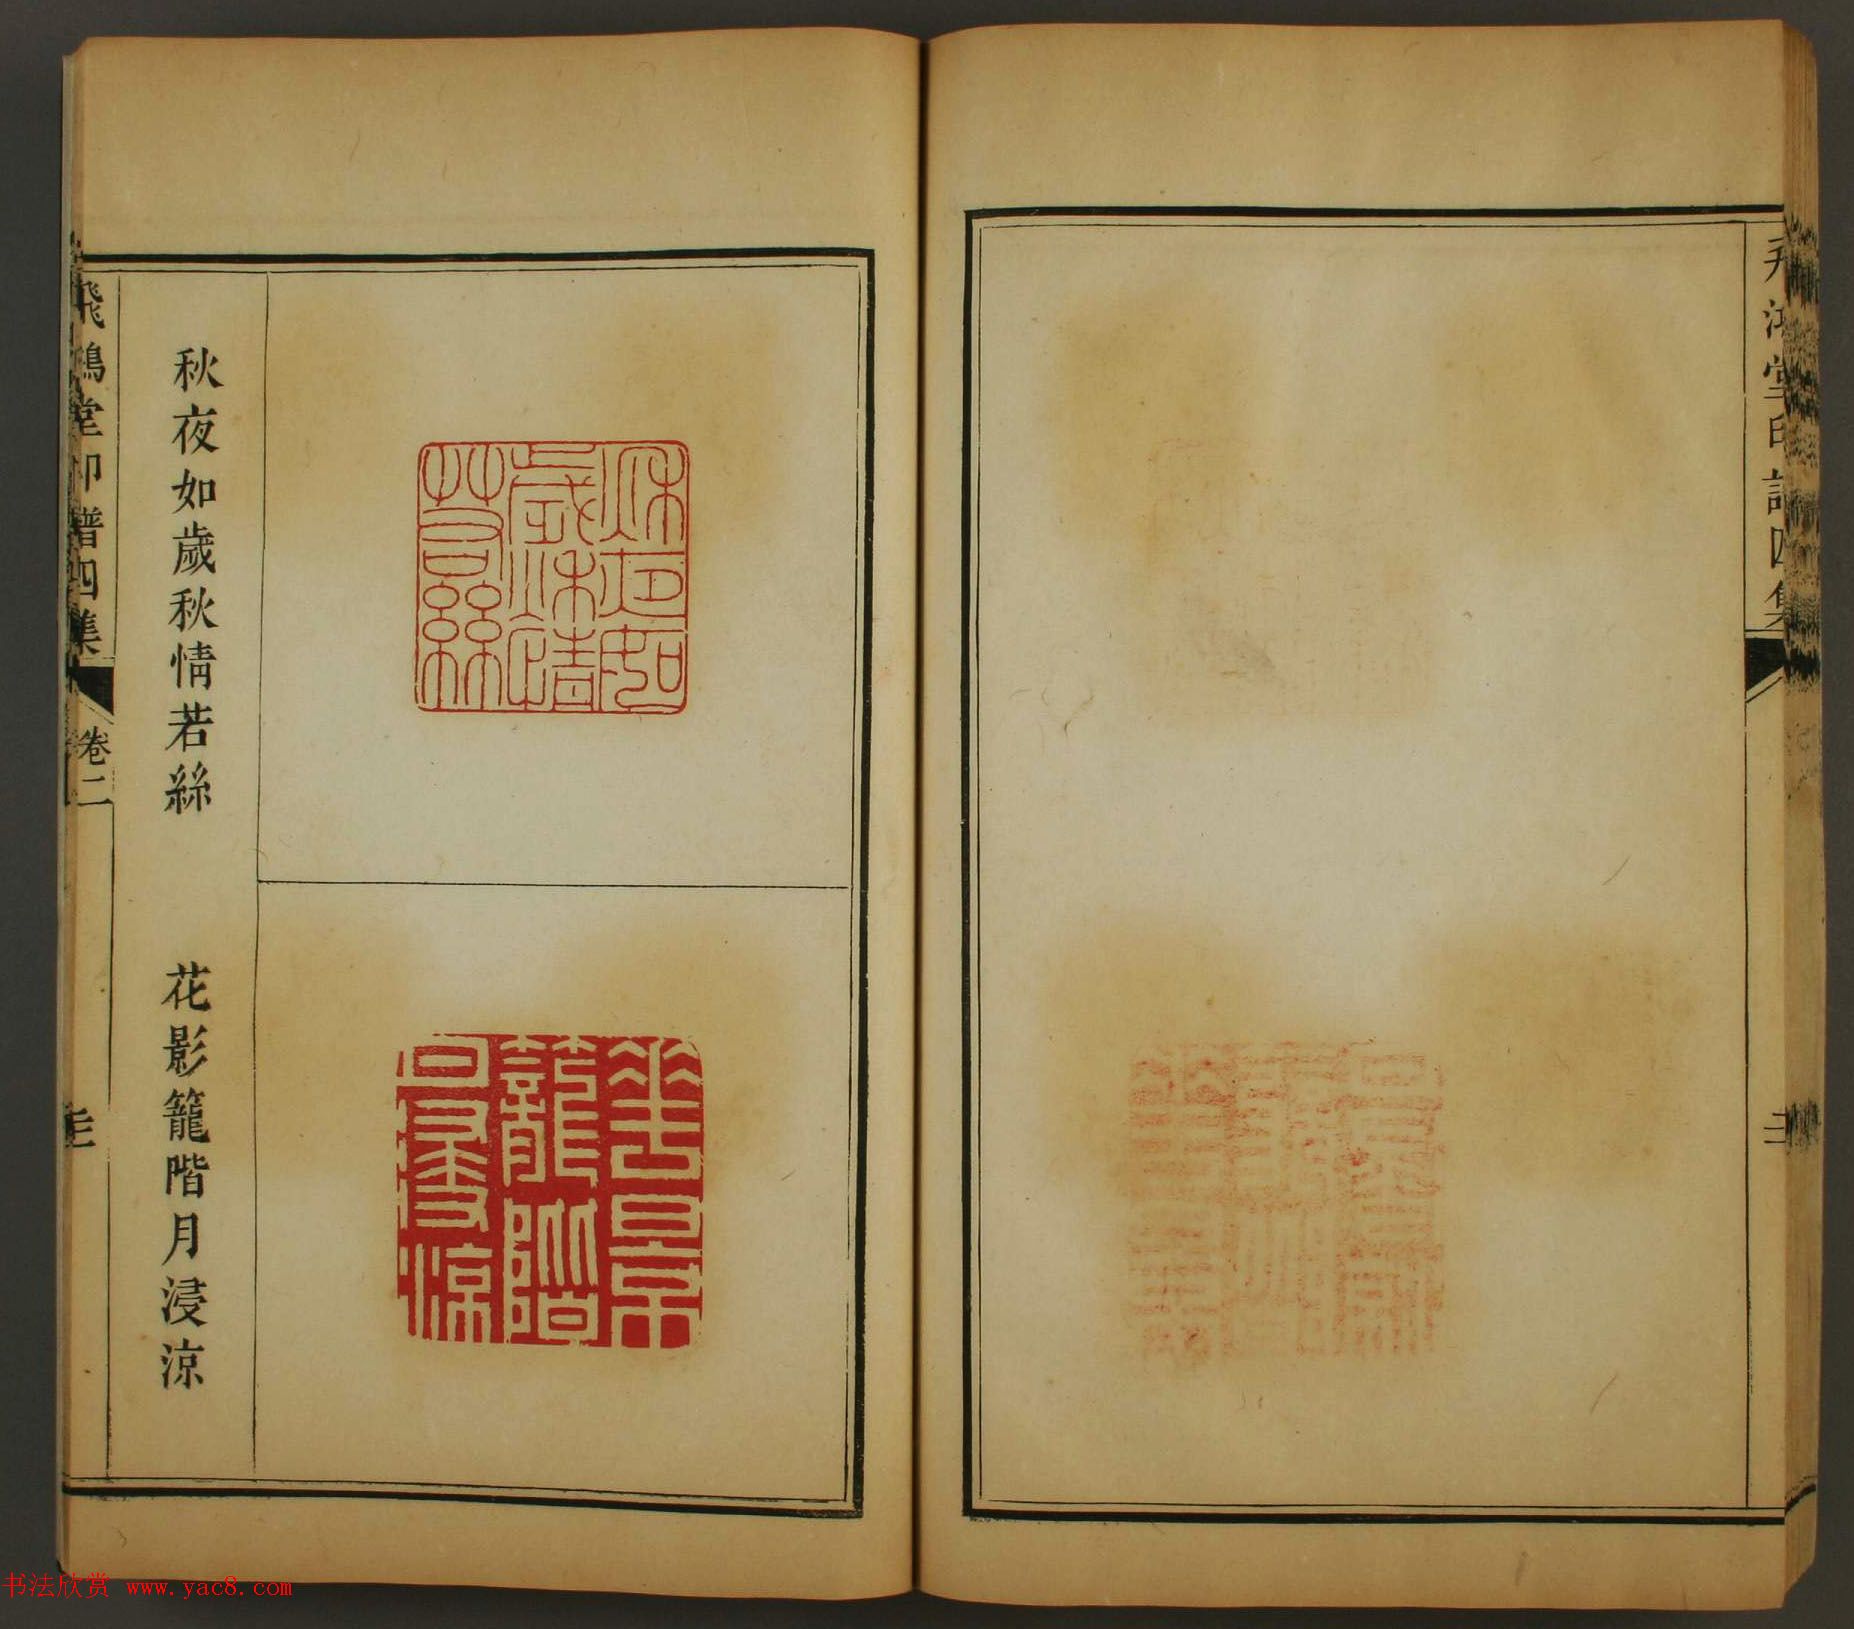 飛鴻堂印譜四集
飛鴻堂印譜四集
卷二
秋夜如歲秋情若絲
花影籠階月浸涼
秋夜如歲秋情若絲
花影籠階月浸涼
书法欣赏 www.yac8.com